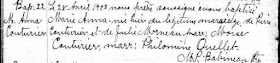 Bap. 22 Le 28 Avril 1900 nous prêtre soussigné avons baptisé
M. Anna Marie Anna, née hier du légitime mariage de Pierre
Couturier Couturier et de Julie Morneau parr: Moïse
Couturier, marr: Philomine Ouellet.
Ptre